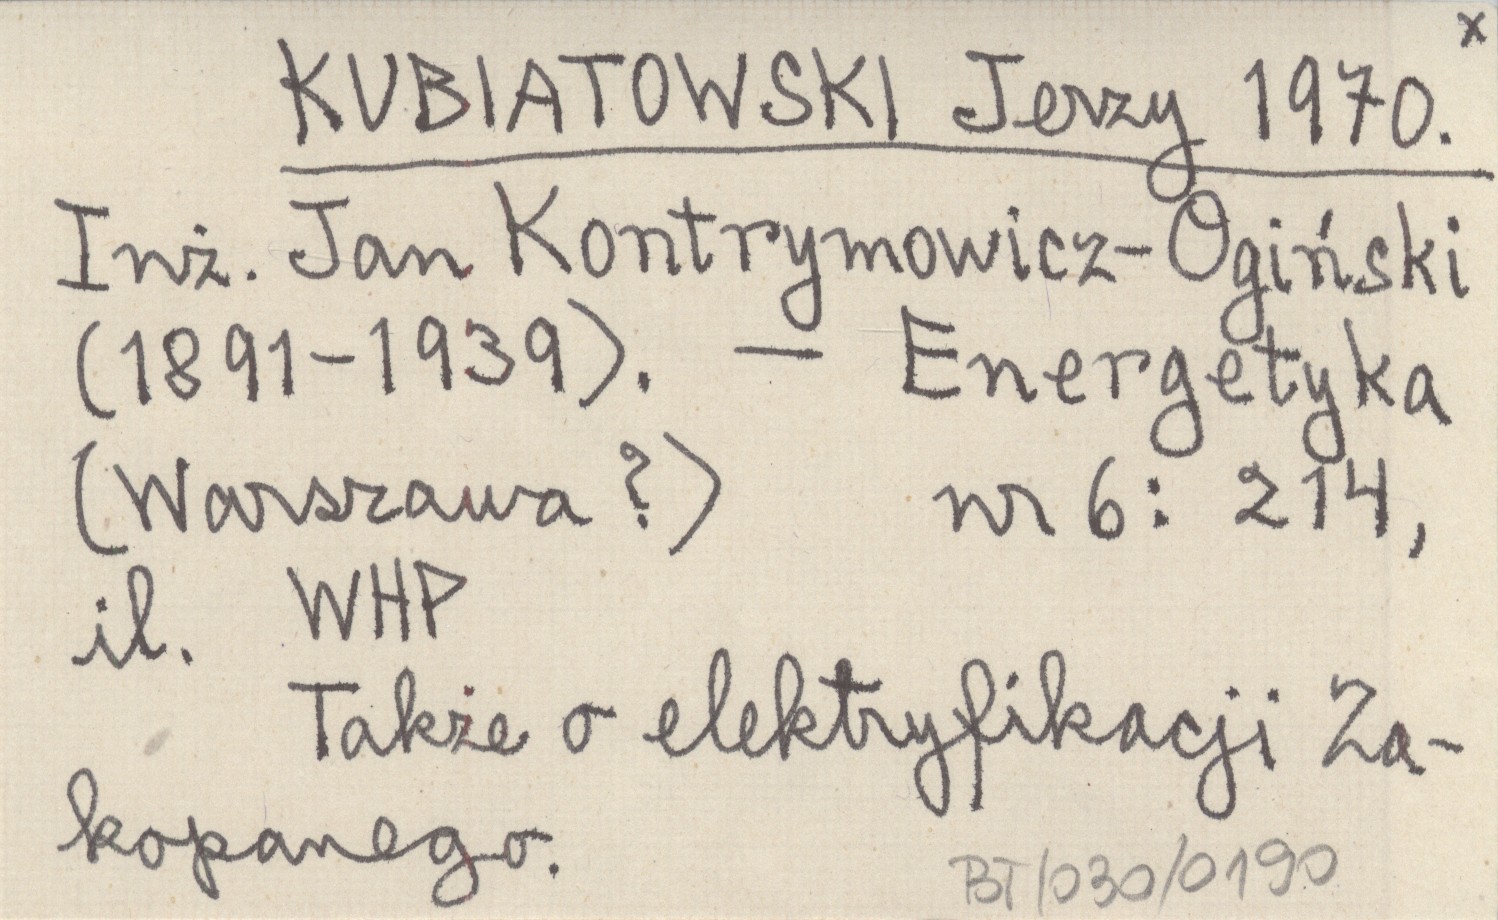 x
KUBIATOWSKI Jerzy 1970.
Inż. Jan Kontrymowicz-Ogiński
(1891-1939). — Energetyka
(Warszawa?) nr 6: 214,
il. WHP
Także o elektryfikacji Za-
kopanego.
BT/030/0190